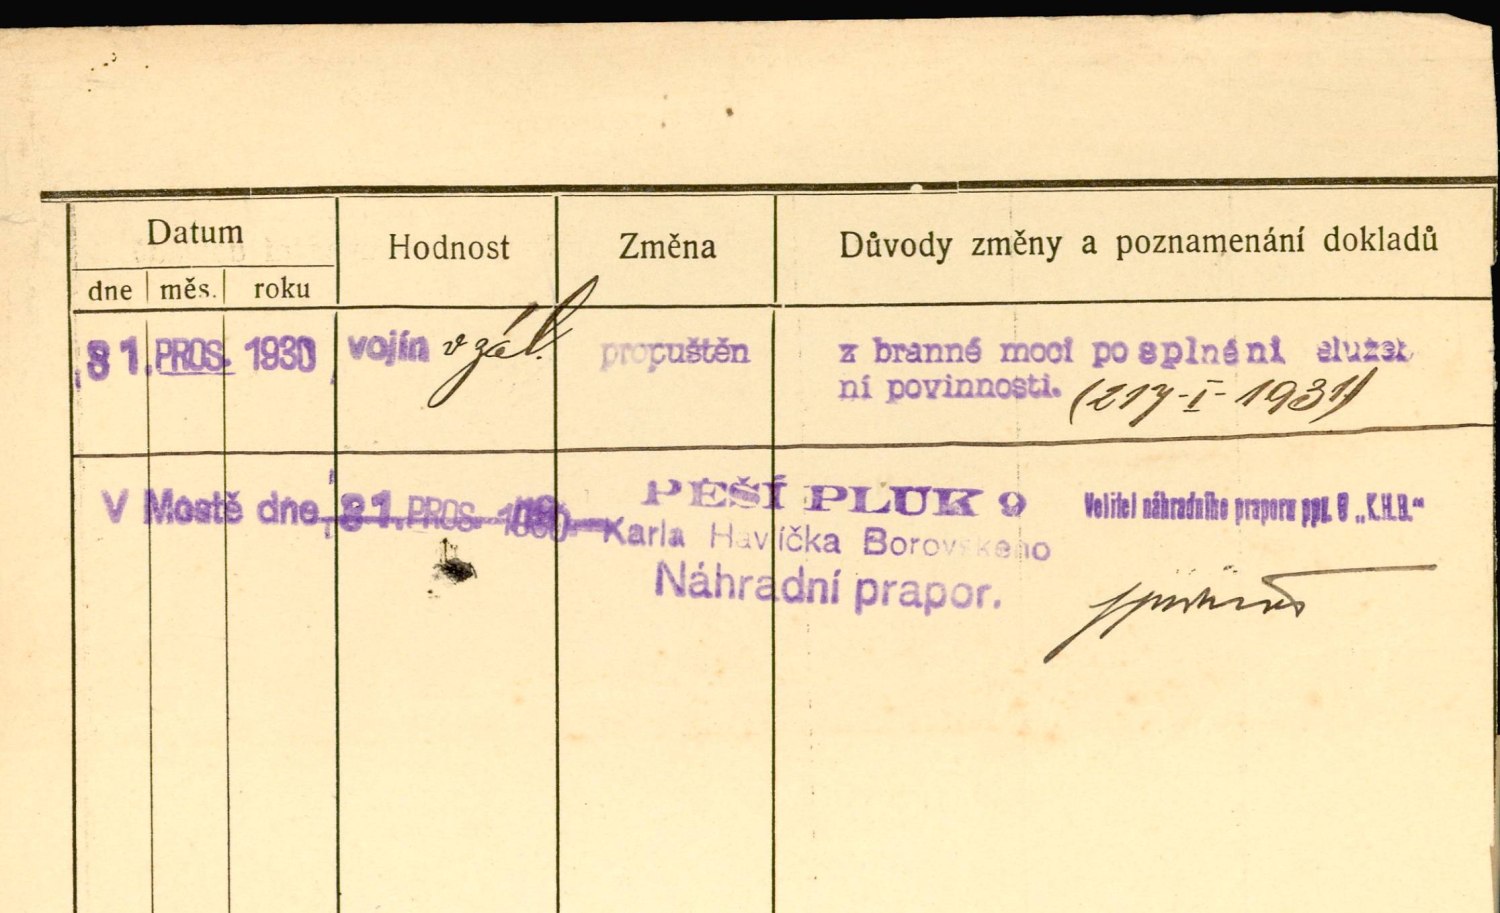 Datum
Hodnost
Změna
Důvody změny a poznamenání dokladů
dne měs. roku
31. PROS. 1930 vojín v zál. propuštěn z branné moci po splnění služeb
ní povinnosti. (217-I-1931)
V Mostě dne 31. PROS. 1930 PĚŠÍ PLUK 9 Velitel náhradního praporu ppl. 9 „K.H.B.“
Karla Havlíčka Borovského
Náhradní prapor.